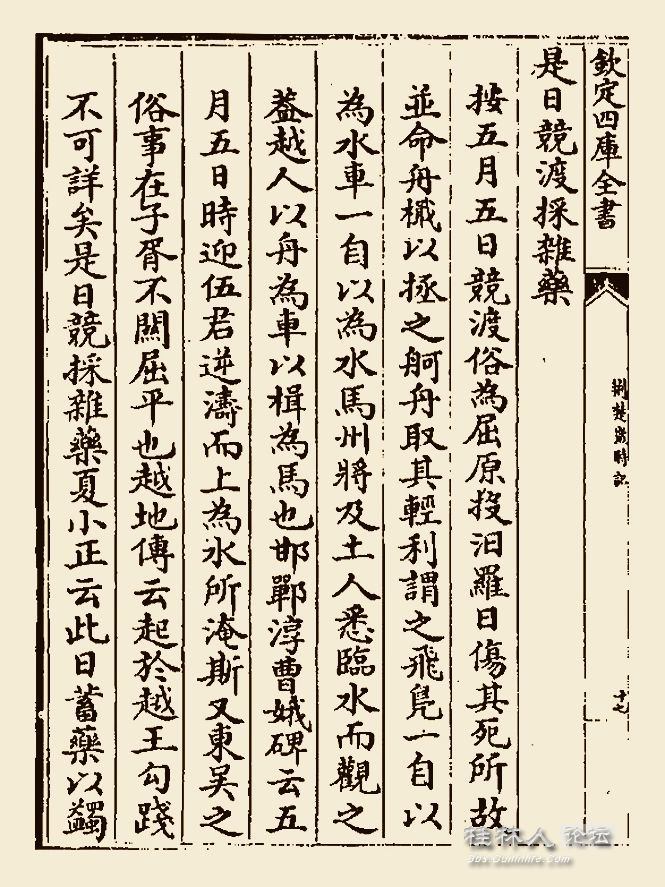 欽定四庫全書
荆楚嵗時記
十七
是日競渡採雜藥
按五月五日競渡俗為屈原投汨羅日傷其死所故
並命舟檝以拯之舸舟取其輕利謂之飛鳬一自以
為水車一自以為水馬州將及土人悉臨水而觀之
葢越人以舟為車以楫為馬也邯鄲淳曹娥碑云五
月五日時迎伍君逆濤而上為水所淹斯又東吳之
俗事在子胥不闗屈平也越地傳云起於越王勾踐
不可詳矣是日競採雜藥夏小正云此日蓄藥以蠲
桂林人 论坛
bbs.Guilinlife.Com